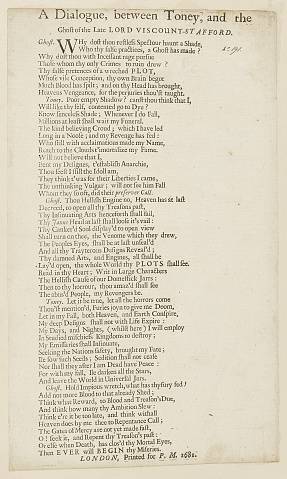 A Dialogue, between Toney, and the
Ghost of the Late LORD VISCOUNT-STAFFORD.
Ghost. WHy dost thou restless Spectour haunt a Shade,
Who thy false practices, a Ghost has made?
Why dost thou with Incessant rage pursue
Those whom thy only Crimes to ruin drew?
Thy false pretences of a wretched PLOT,
Whose vile Conception, thy own Brain begot
Much Blood has spilt; and on thy Head has brought,
Heavens Vengeance, for the perjuries thou'st taught.
Toney. Poor empty Shaddow! can'st thou think that I,
Will like thy self, contented go to Dye?
Know senceless Shade; Whenever I do Fall,
Millions at least shall wait my Funeral.
The kind believing Croud; which I have led
Long in a Noose; and my Revenge has fed:
Who still with acclamations made my Name,
Reach to the Clouds t'immortalize my Fame.
Will not believe that I,
Bent my Designes, t'establish Anarchie,
Thou seest I still the Idoll am,
They think 'twas for their Liberties I came,
The unthinking Vulgar; will not see him Fall
Whom they stood, did their preserver Call.
Ghost. Thou Hellish Engine no, Heaven has at last
Decreed, to open all thy Treasons past,
Thy Insinuating Arts henceforth shall fail,
Thy Janus Head at last shall loose it's vail:
Thy Canker'd Soul display'd to open view
Shall turn on thee, the Venome which they drew,
The Peoples Eyes, shall be at last unseal'd
And all thy Trayterous Designs Reveal'd;
Thy damned Arts, and Engines, all shall be
Lay'd open, the whole World thy PLOTS shall see.
Read in thy Heart; Writ in Large Characters
The Hellish Cause of our Domestick Jarrs;
Then to thy horrour, thou amaz'd shall see
The abus'd People, my Revengers be.
Toney. Let it be true, let all the horrors come
Thou'st mention'd, Furies joyn to give me Doom,
Let in my Fall, both Heaven, and Earth Conspire,
My deep Designs shall not with Life Expire:
My Days, and Nights, (whilst here) I will employ
In Studied mischiefs Kingdoms to destroy;
My Emissaries shall Insinuate,
Seeking the Nations safety, brought my Fate;
Ile sow such Seeds; Sedition shall not cease
Nor shall they after I am Dead have Peace:
For with my fall, Ile darken all the Stars,
And leave the World in Universal Jars.
Ghost. Hold Impious wretch, what has thy fury fed?
Add not more Blood to that already Shed;
Think what Reward, to Blood and Treason's Due,
And think how many thy Ambition Slew;
Think e're it be too late, and think withall
Heaven does by me thee to Repentance Call;
The Gates of Mercy are not yet made fast,
O! seek it, and Repent thy Treason's past:
Or else when Death, has clos'd thy Mortal Eyes,
Then EVER will BEGIN thy Miseries.
LONDON, Printed for P. M. 1682.